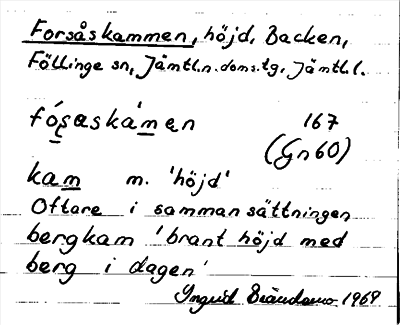 Forsåskammen, höjd, Backen,
Föllinge sn, Jämtl.n.doms.tg, Jämtl.l.
fóṣaskámen 167
(Gn60)
kam m. 'höjd'
Oftare i sammansättningen
bergkam 'brant höjd med
berg i dagen'
Ingrid 1969